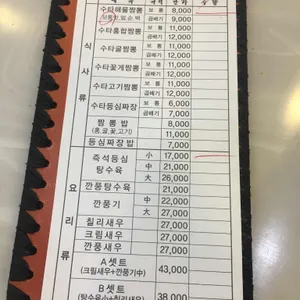 수타해물짬뽕 보통 8,000
곱배기 9,000
수타홍합짬뽕 보통 11,000
곱배기 12,000
수타굴짬뽕 보통 11,000
곱배기 12,000
수타꽃게짬뽕 보통 11,000
곱배기 12,000
수타고기짬뽕 보통 11,000
곱배기 12,000
수타등심짜장 보통 6,000
곱배기 7,000
짬뽕밥 8,000
(홍,굴,꽃,고기) 11,000
등심짜장밥 7,000
식사류
즉석등심탕수육 소 17,000
중 21,000
대 26,000
깐풍탕수육 21,000
깐풍기 중 22,000
대 27,000
칠리새우 27,000
크림새우 27,000
깐풍새우 27,000
요리류
A셋트
(크림새우+깐풍기中) 43,000
B셋트
(탕수육小+칠리새우) 38,000